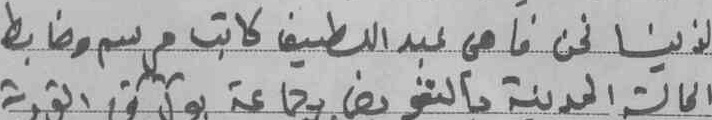 لدينا نحن فاهي عبد اللطيف كاتب مرسم وضابط
الحالة المدنية بالتفويض بجماعة بو القرية